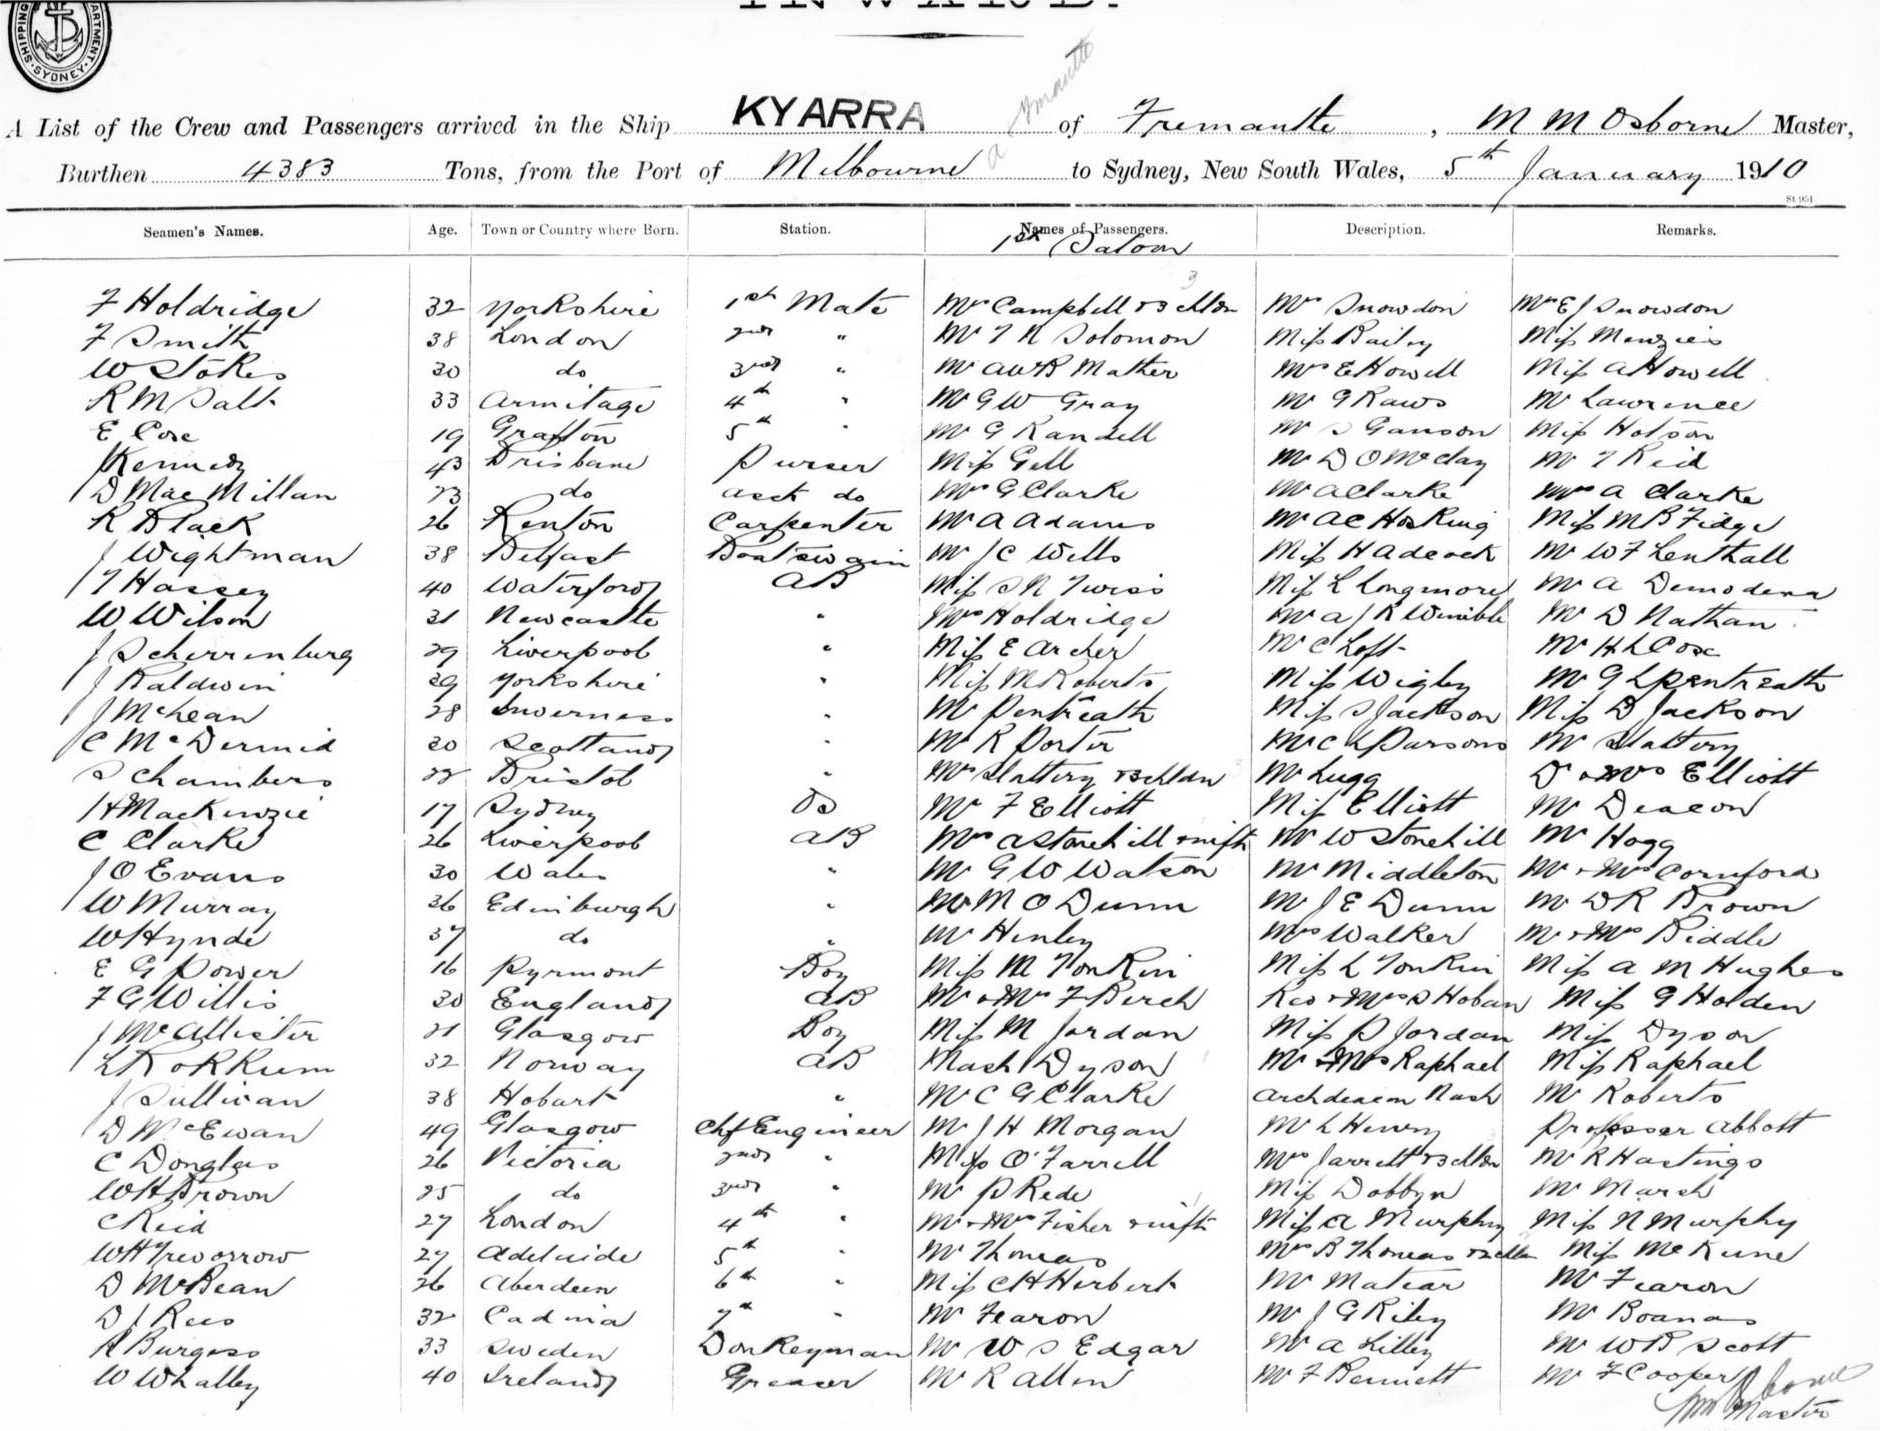 INWARD.
SHIPPING DEPARTMENT SYDNEY
A List of the Crew and Passengers arrived in the Ship KYARRA of Fremantle, M M Osborne Master,
Burthen 4383 Tons, from the Port of Melbourne to Sydney, New South Wales, 5th January 1910
Seamen's Names. Age. Town or Country where Born. Station. Names of Passengers. Description. Remarks.
1st Saloon
F Holdridge 32 Yorkshire 1st Mate Mrs Campbell & 3 chldn Mr Snowdon Mr E J Snowdon
F Smith 38 London 2nd " Mr T N Solomon Miss Bailey Miss Menzies
W Stokes 30 do 3rd " Mr A W R Mather Mrs E Howell Miss A Howell
R M Salt 33 Armitage 4th " Mr G W Gray Mr G Raws Mr Lawrence
E Cox 19 Grafton 5th " Mr G Randell Mr S Ganson Miss Hobson
Kennedy 43 Brisbane Purser Miss Gell Mr D O McClay Mr T Reid
D MacMillan 23 do Asst do Mrs G Clarke Mr A Clarke Mrs A Clarke
R Black 26 Renton Carpenter Mr A Adams Mr A C Hosking Miss M B Fidge
J Wightman 38 Belfast Boatswain Mr J C Wells Miss H Adcock Mr W F Lenthall
T Hassey 40 Waterford AB Miss S N Twiss Miss L Longmore Mr A Demodena
W Wilson 31 Newcastle " Mrs Holdridge Mr A J R Wimble Mr D Nathan
J Scherrenburg 29 Liverpool " Miss E Archer Mr C Loft Mr H L Cox
J Baldwin 39 Yorkshire " Miss M Roberts Miss Wigley Mr G L Pentreath
J McLean 28 Inverness " Mr Pentreath Miss S Jackson Miss D Jackson
C McDermid 20 Scotland " Mr R Porter Mr C L Parsons Mr Slattery
S Chambers 22 Bristol " Mrs Slattery & 3 chldn Mr Lugg Dr & Mrs Elliott
H MacKenzie 17 Sydney OS Mr F Elliott Miss Elliott Mr Deacon
C Clarke 26 Liverpool AB Mrs A Stonehill & inft Mr W Stonehill Mr Hogg
J O Evans 30 Wales " Mr G W Watson Mr Middleton Mr & Mrs Cornford
W Murray 36 Edinburgh " Mr M O Dunn Mr J E Dunn Mr D R Brown
W Hynde 37 do " Mr Henley Mrs Walker Mr & Mrs Biddle
E G Power 16 Pyrmont Boy Miss M Tonkin Miss L Tonkin Miss A M Hughes
F G Willis 30 England AB Mr & Mrs F Birch Rev & Mrs S Hoban Miss G Holden
J McAllister 21 Glasgow Boy Miss M Jordan Miss P Jordan Miss Dyson
L Kokkum 32 Norway AB Mast Dyson Mr & Mrs Raphael Miss Raphael
J Sullivan 38 Hobart " Mr C G Clarke Archdeacon Nash Mr Roberts
D McEwan 49 Glasgow Chf Engineer Mr J H Morgan Mr L Henry Professor Abbott
C Douglas 26 Victoria 2nd " Miss O'Farrell Mrs Jarrett & 3 chldn Mr R Hastings
W H Brown 25 do 3rd " Mr P Rede Miss Dobbyn Mr Marsh
C Reid 27 London 4th " Mr & Mrs Fisher & inft Miss A Murphy Miss N Murphy
W H Treworrow 27 Adelaide 5th " Mr Thomas Mrs B Thomas & 2 chldn Miss McKune
D McBean 26 Aberdeen 6th " Miss C H Herbert Mr Matear Mr Fearon
D J Rees 32 Cadnia 7th " Mr Fearon Mr J G Riley Mr Boanas
A Burgess 33 Sweden Donkeyman Mr W S Edgar Mr A Lilley Mr W B Scott
W Whalley 40 Ireland Greaser Mr R Allen Mr F Bennett Mr F Cooper
Master